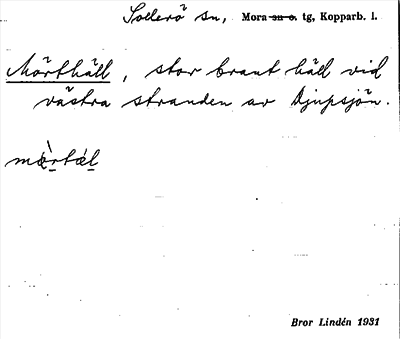 Sollerö sn, Mora sn o. tg, Kopparb. l.
Mörthäll, stor brant häll vid
västra stranden av Djupsjön.
mœ̀rtǽl
Bror Lindén 1931